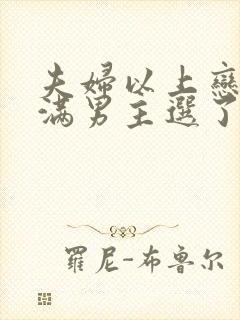 夫婦以上戀
滿男主選了
羅尼-布魯尔